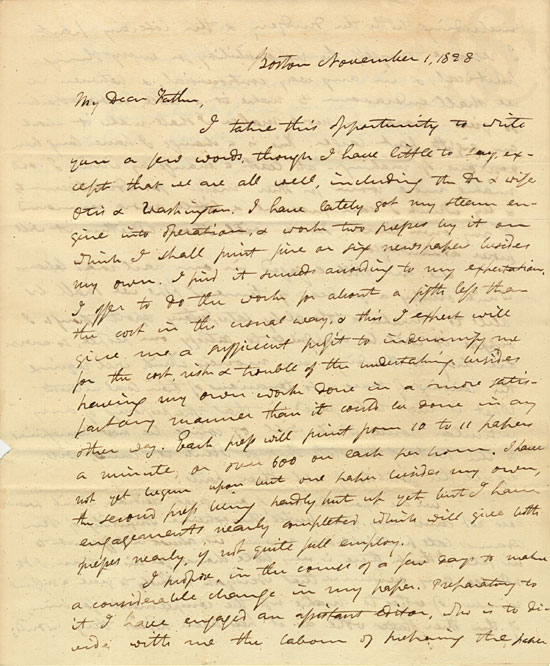 Boston November 1, 1828
My Dear Father,
I take this opportunity to write
you a few words, though I have little to say, ex-
cept that we are all well, including the Dr & wife
Otis & Washington. I have lately got my steam en-
gine into operation, & work two presses by it on
which I shall print five or six newspaper besides
my own. I find it succeeds according to my expectation.
I offer to do the work for about a fifth less than
the cost in the usual way, & this I expect will
give me a sufficient profit to indemnify me
for the cost, risk & trouble of the undertaking, besides
having my own work done in a more satis-
factory manner than it could be done in any
other way. Each press will print from 10 to 11 papers
a minute, or over 600 on each per hour. I have
not yet begun upon but one paper besides my own,
the second press being hardly put up yet, but I have
engagements nearly completed which will give both
presses nearly, if not quite full employ.
I propose, in the course of a few days to make
a considerable change in my paper. Preparatory to
it I have engaged an assistant editor, who is to di-
vide with me the labour of preparing the paper